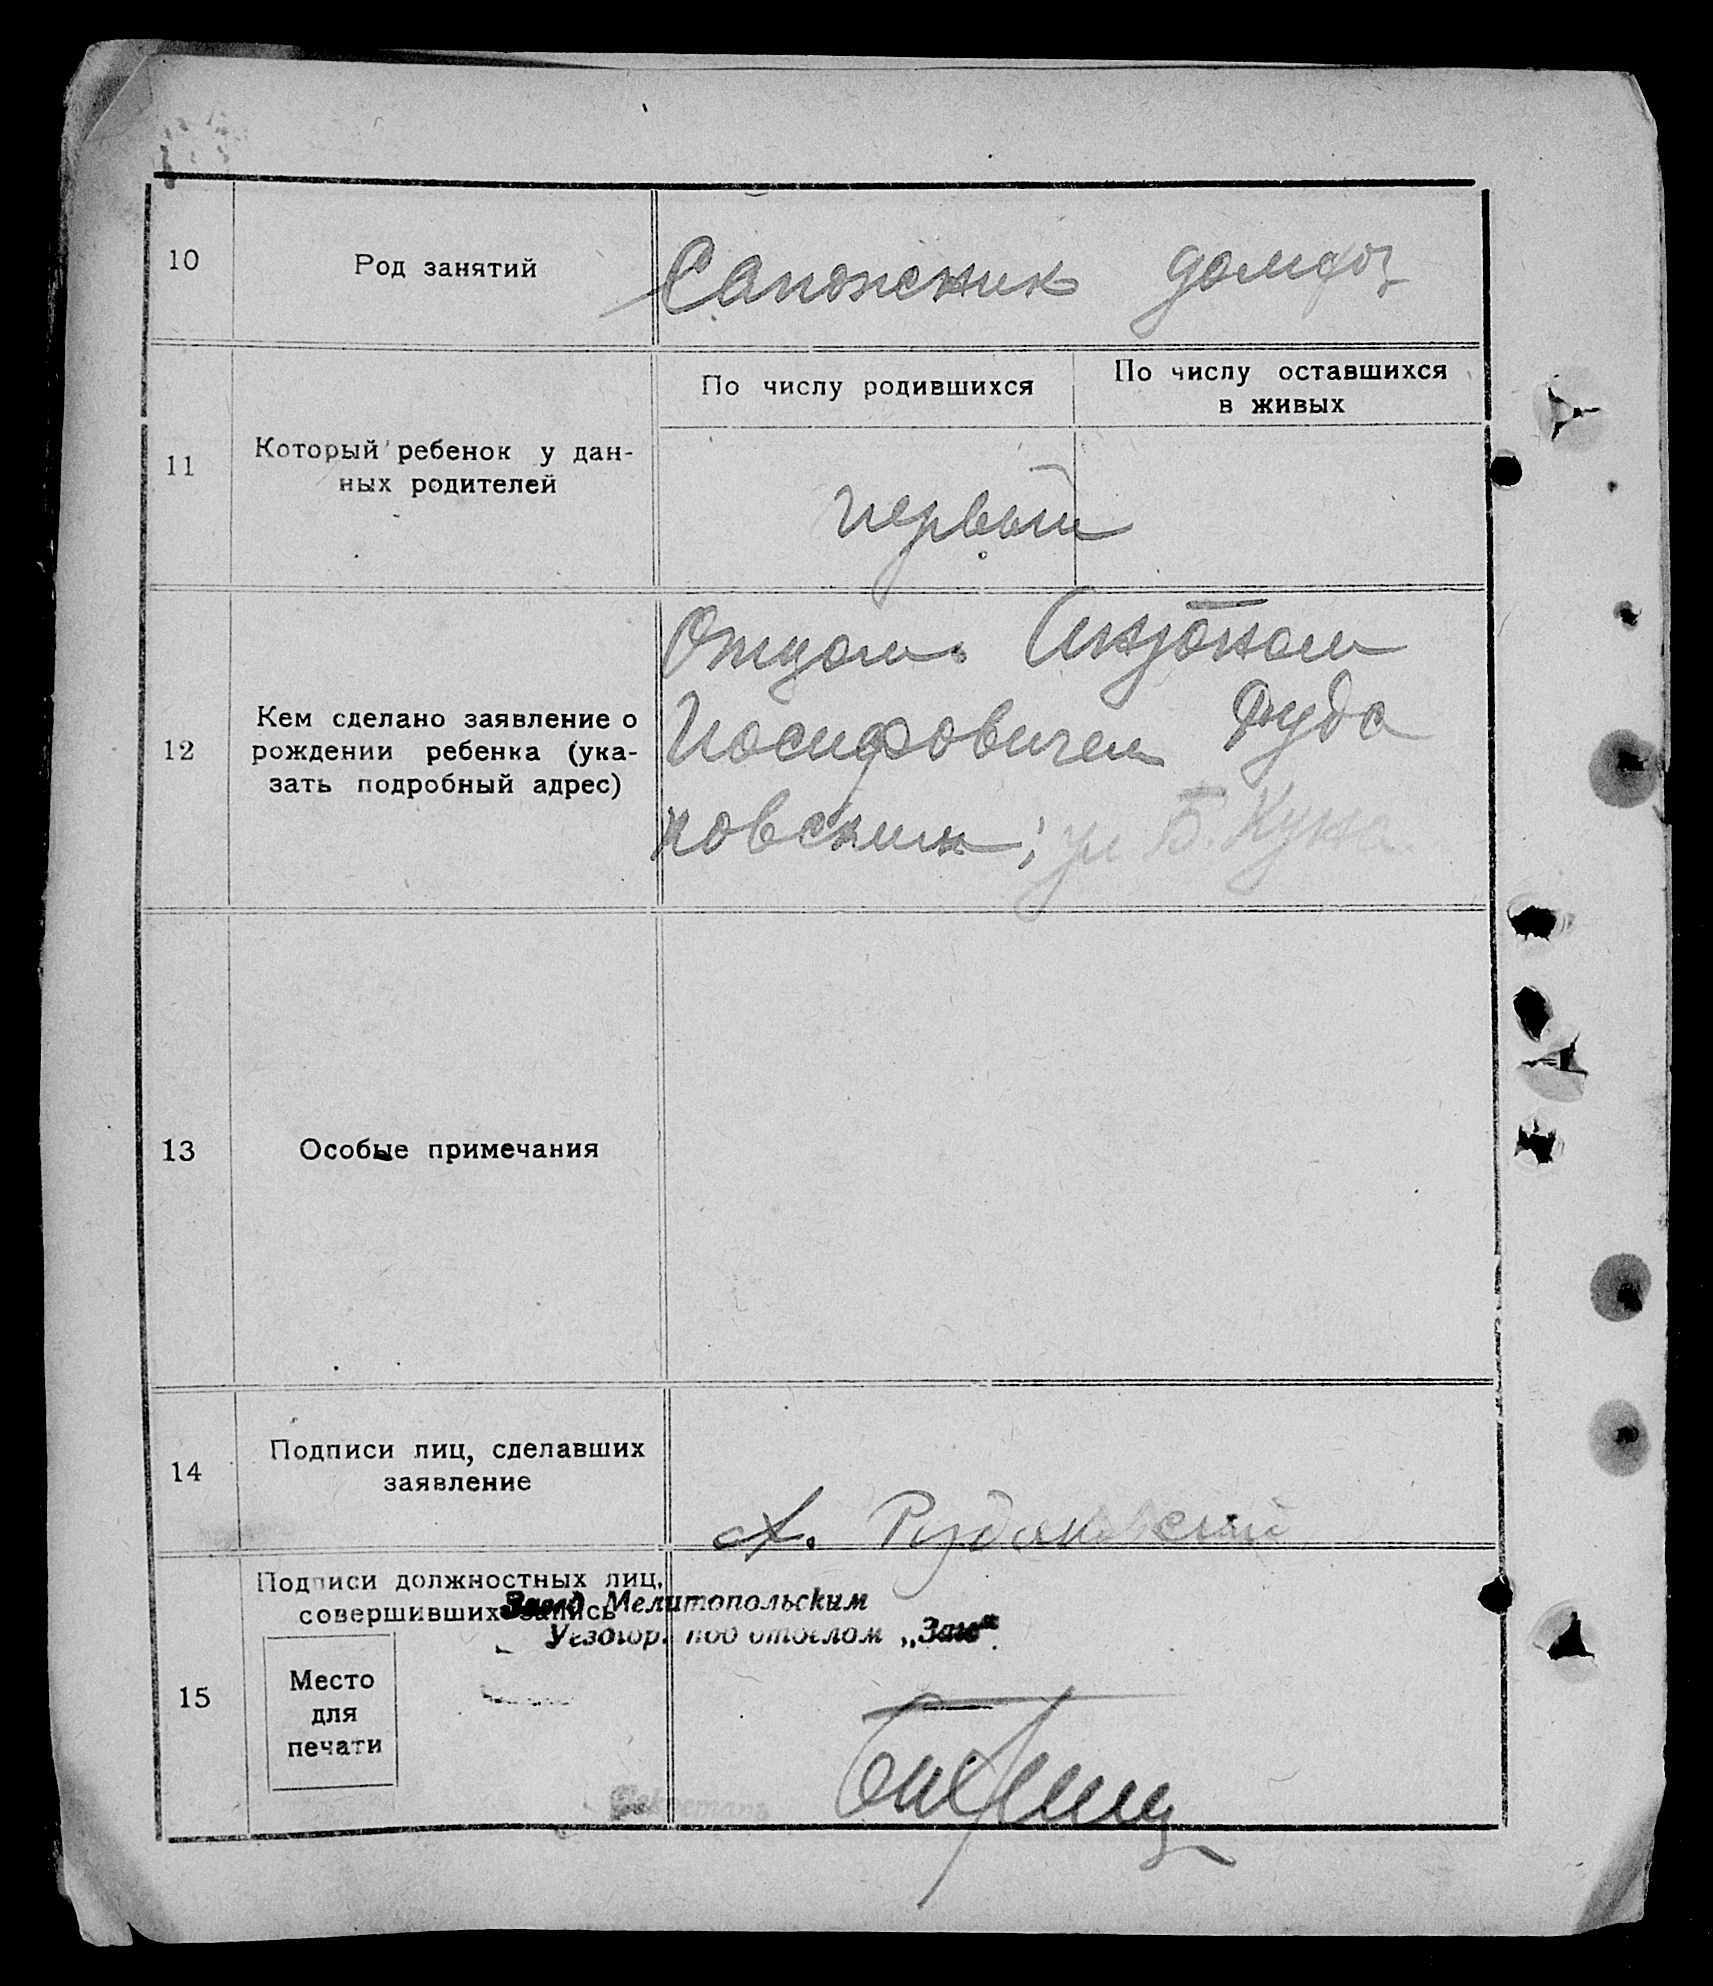 10
Род занятий
Сапожник домхоз
11
Который ребенок у дан-
ных родителей
По числу родившихся
По числу оставшихся
в живых
первый
12
Кем сделано заявление о
рождении ребенка (ука-
зать подробный адрес)
Отцом Антоном
Иосифовичем Руда
ковским; ул Б. Куна
13
Особые примечания
14
Подписи лиц, сделавших
заявление
А. Рудаковский
15
Подписи должностных лиц,
совершивших запись
Завед Мелитопольским
Уездгор. под отделом „Загс“
Место
для
печати
Секретарь